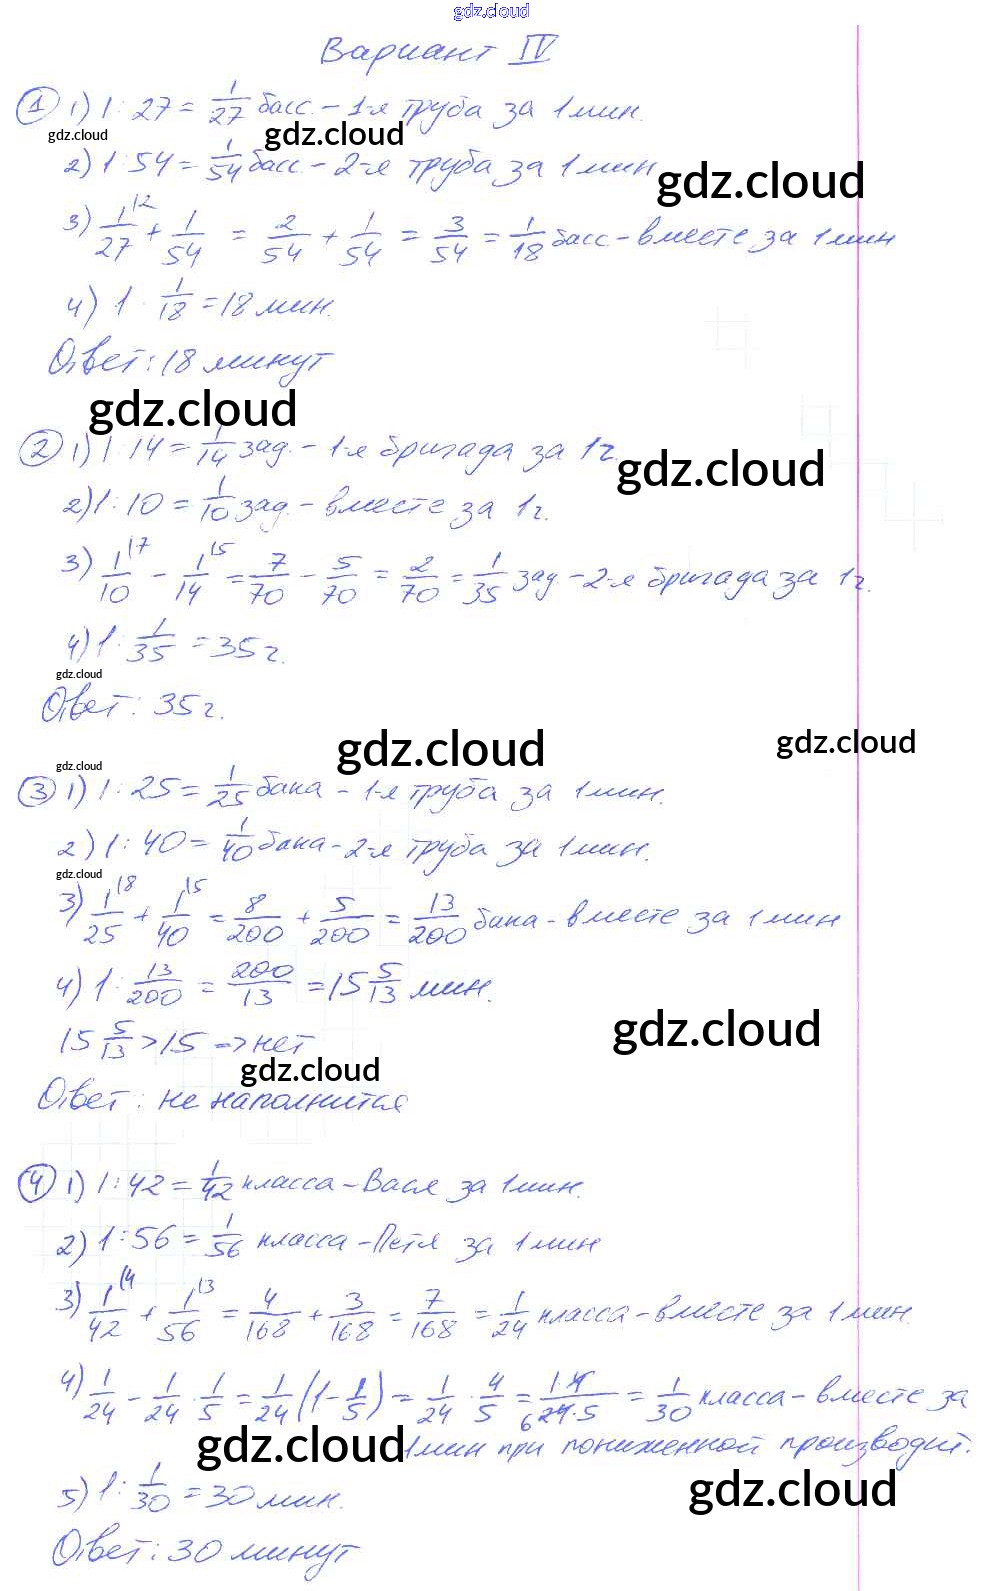 gdz.cloud
Вариант IV
1 1) 1 : 27 = 1/27 басс. - 1-я труба за 1 мин.
gdz.cloud
gdz.cloud
2) 1 : 54 = 1/54 басс. - 2-я труба за 1 мин
gdz.cloud
3) 1/27 \2 + 1/54 = 2/54 + 1/54 = 3/54 = 1/18 басс - вместе за 1 мин
4) 1 : 1/18 = 18 мин.
Ответ: 18 минут
gdz.cloud
2 1) 1 : 14 = 1/14 зад. - 1-я бригада за 1 ч.
gdz.cloud
2) 1 : 10 = 1/10 зад. - вместе за 1 ч.
3) 1/10 \7 - 1/14 \5 = 7/70 - 5/70 = 2/70 = 1/35 зад - 2-я бригада за 1 ч.
4) 1 : 1/35 = 35 ч.
gdz.cloud
Ответ: 35 ч.
gdz.cloud
gdz.cloud
gdz.cloud
3 1) 1 : 25 = 1/25 бака - 1-я труба за 1 мин.
2) 1 : 40 = 1/40 бака - 2-я труба за 1 мин.
gdz.cloud
3) 1/25 \8 + 1/40 \5 = 8/200 + 5/200 = 13/200 бака - вместе за 1 мин
4) 1 : 13/200 = 200/13 = 15 5/13 мин.
gdz.cloud
15 5/13 > 15 => нет
gdz.cloud
Ответ: не наполнится
4 1) 1 : 42 = 1/42 класса - Вася за 1 мин.
2) 1 : 56 = 1/56 класса - Петя за 1 мин
3) 1/42 \4 + 1/56 \3 = 4/168 + 3/168 = 7/168 = 1/24 класса - вместе за 1 мин.
4) 1/24 - 1/24 · 1/5 = 1/24 (1 - 1/5) = 1/24 · 4/5 = 1·4/6 24·5 = 1/30 класса - вместе за
gdz.cloud
1 мин при пониженной производит.
gdz.cloud
5) 1 : 1/30 = 30 мин.
Ответ: 30 минут